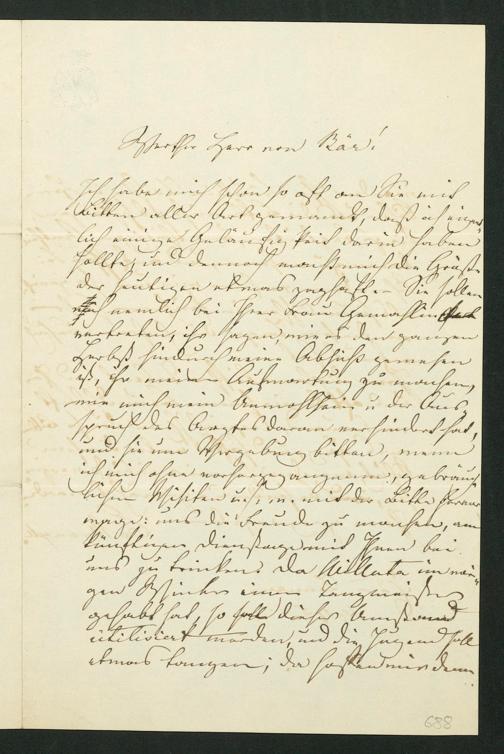 Werther Herr von Bär!
Ich habe mich schon so oft an Sie mit
Bitten aller Art gewandt, daß ich
lich einige Geläufigkeit darin haben
sollte, und dennoch macht mich die Größe
der heutigen etwas zaghaft. Sie sollen
mich nemlich bei Ihrer Frau Gemahlin
vertreten, ihr sagen, wie es den ganzen
Herbst hindurch meine Absicht gewesen
ist, ihr meine Aufwartung zu machen,
wie mich mein Unwohlsein u. der Aus
spruch des Arztes daran verhindert hat,
und sie um Vergebung bitten, wenn
ich mich ohne vorhergegangene, gebräuch
lichen Visiten u.s.w. mit der Bitte heran
wage: uns die Freude zu machen, am
künftigen Dienstage mit Ihnen bei
uns zu trinken. Da im vori
gen Winter einen Tanzmeister
gehabt hat, so soll dieser Umstand
utilisirt werden, und die Jugend soll
etwas tanzen; da hoffen wir denn
688